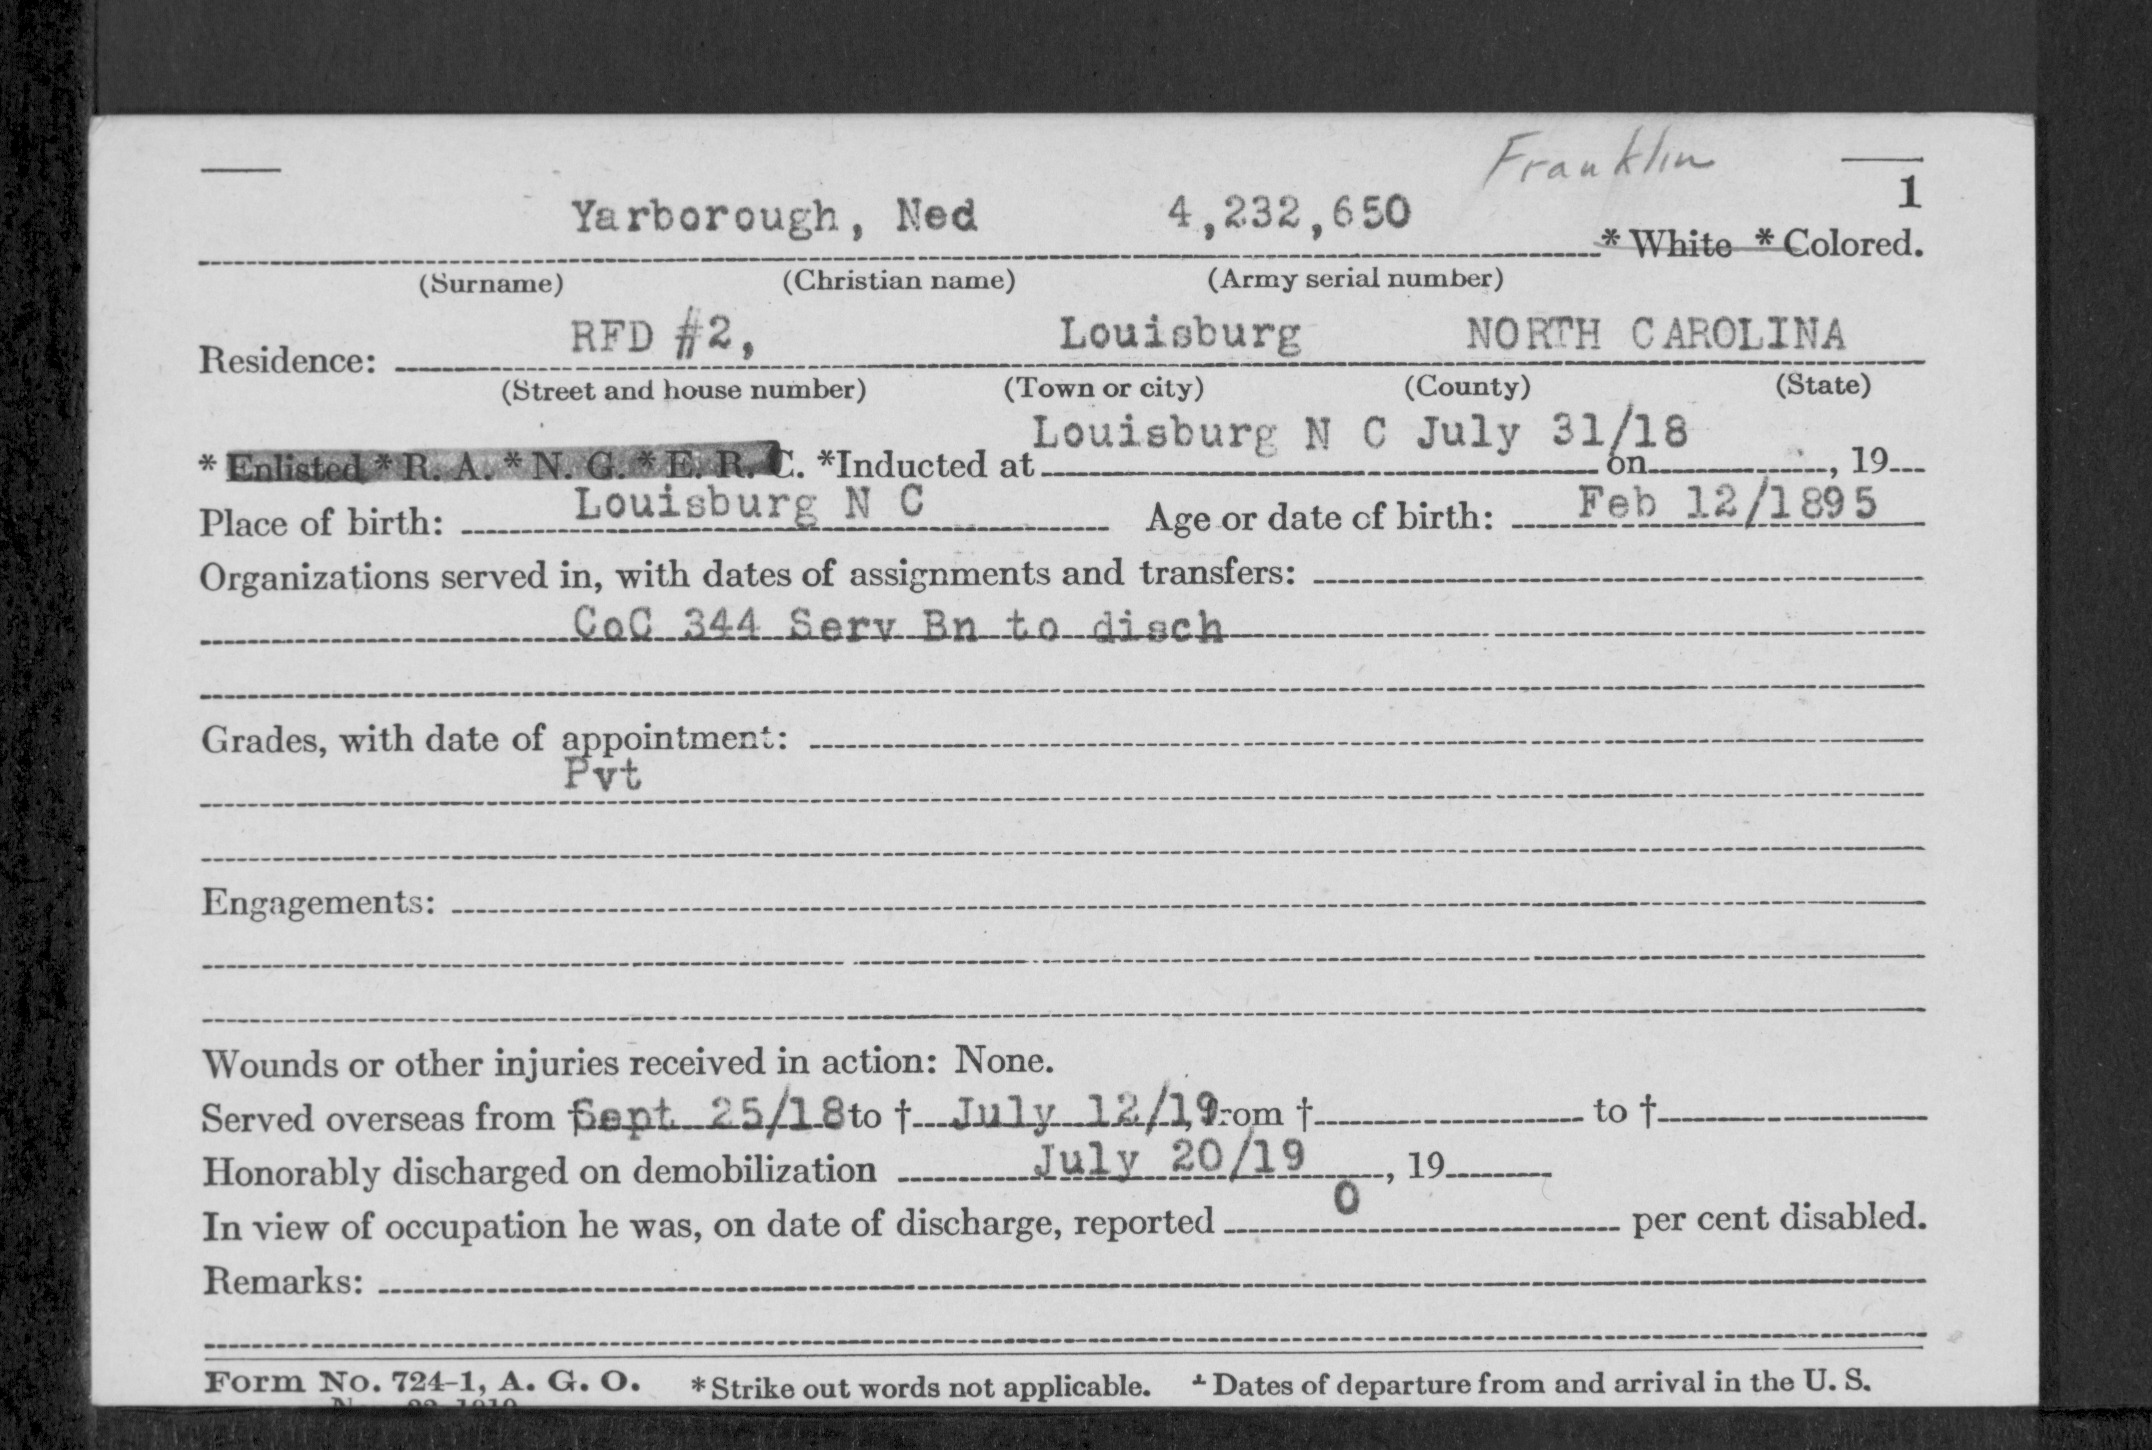 Franklin
1
Yarborough, Ned 4,232,650 * White * Colored.
(Surname) (Christian name) (Army serial number)
Residence: RFD #2, Louisburg NORTH CAROLINA
(Street and house number) (Town or city) (County) (State)
Louisburg N C July 31/18
* Enlisted * R. A. * N. G. * E. R. C. *Inducted at on , 19
Place of birth: Louisburg N C Age or date of birth: Feb 12/1895
Organizations served in, with dates of assignments and transfers:
CoC 344 Serv Bn to disch
Grades, with date of appointment:
Pvt
Engagements:
Wounds or other injuries received in action: None.
Served overseas from † Sept 25/18 to † July 12/19, from † to †
Honorably discharged on demobilization July 20/19, 19
In view of occupation he was, on date of discharge, reported 0 per cent disabled.
Remarks:
Form No. 724-1, A. G. O. * Strike out words not applicable. † Dates of departure from and arrival in the U. S.